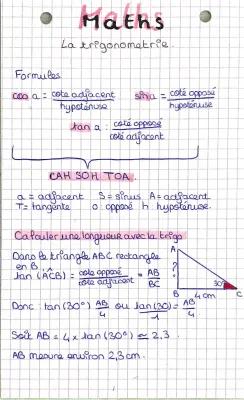 Maths
La trigonometrie.
Formules
cos a = coté adjacent / hypoténuse
sin a = coté opposé / hypoténuse
tan a : coté opposé / coté adjacent
CAH SOH TOA.
a = adjacent S = sinus A = adjacent
T = tangente o : opposé h hypoténuse.
Calculer une longueur avec la trigo
Dans le triangle ABC rectangle
en B.
tan (ACB) = coté opposé / coté adjacent = AB / BC
A
?
B 4 cm C
30°
Donc : tan (30°) AB / 4 ou tan (30) / 1 = AB / 4
Soit AB = 4 x tan (30°) ≈ 2,3.
AB mesure environ 2,3 cm.